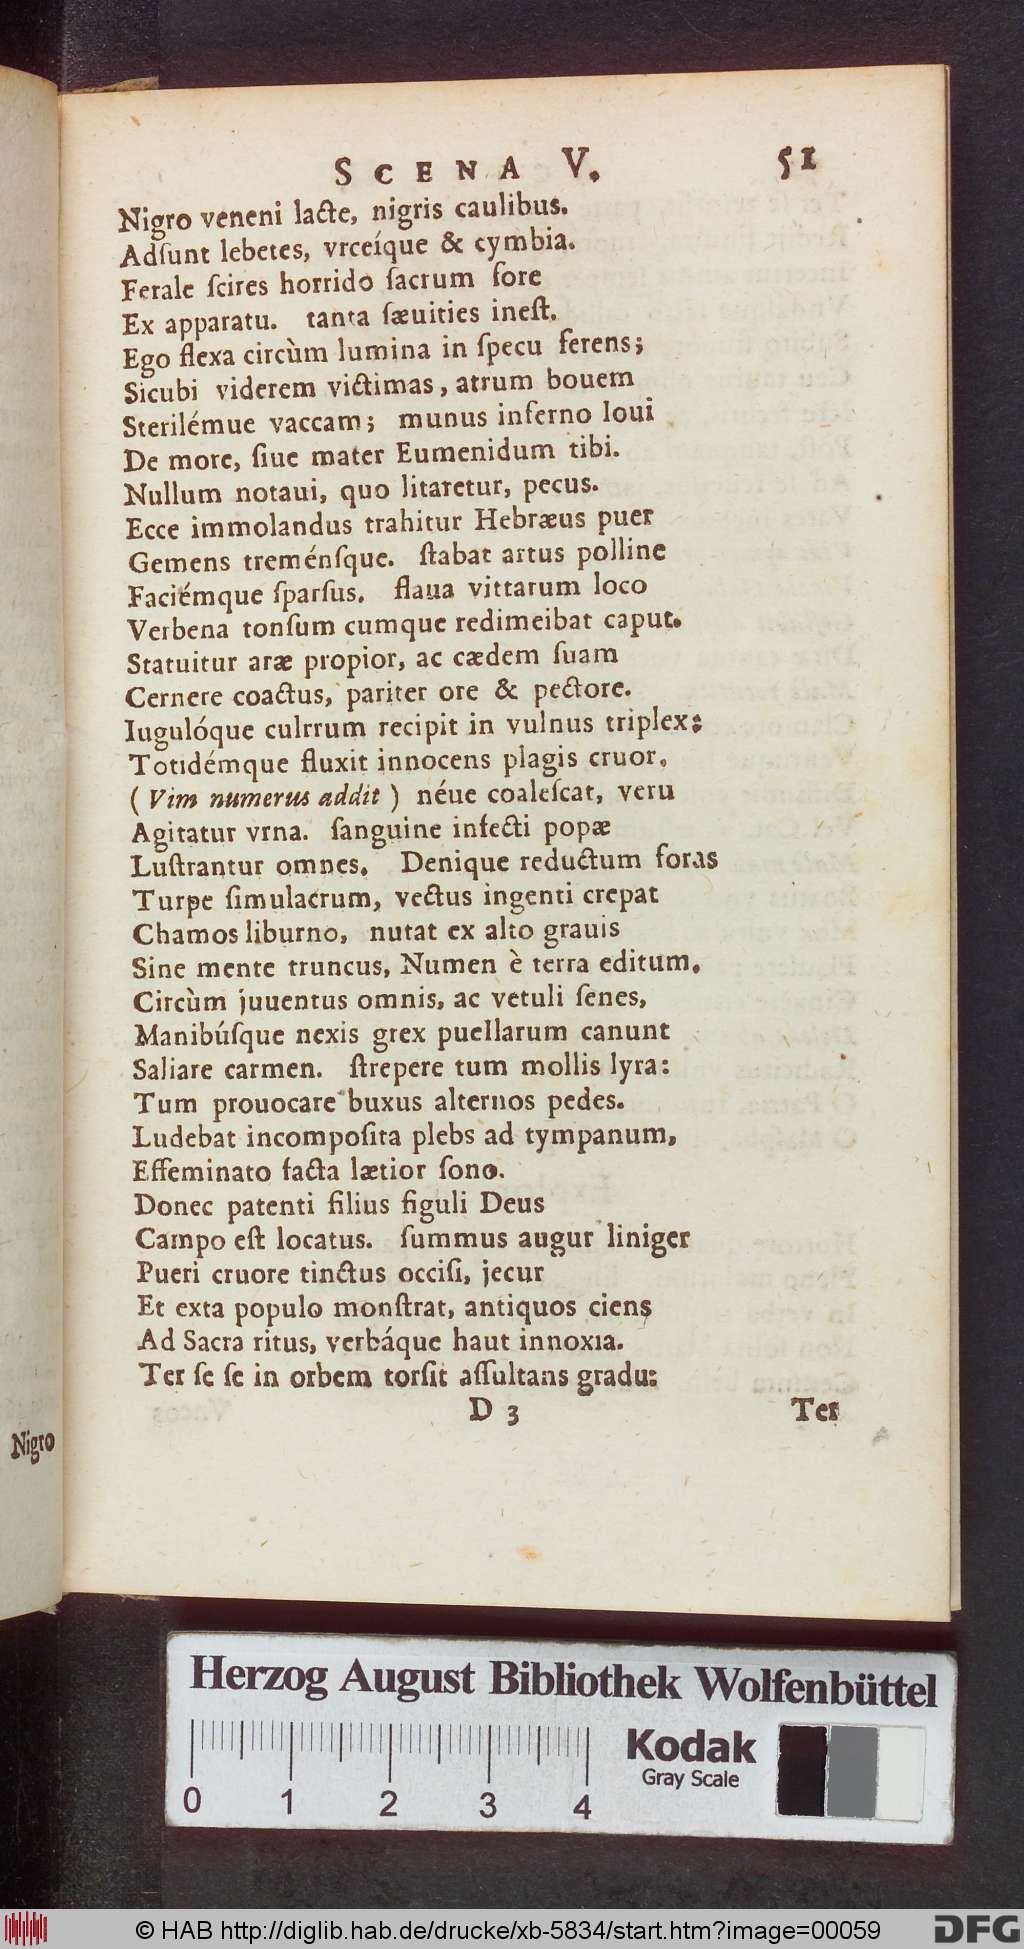 SCENA V. 51
Nigro veneni lacte, nigris caulibus.
Adſunt lebetes, vrceíque & cymbia.
Ferale ſcires horrido ſacrum fore
Ex apparatu. tanta ſæuities ineſt.
Ego flexa circùm lumina in ſpecu ferens;
Sicubi viderem victimas, atrum bouem
Sterilémue vaccam; munus inferno Ioui
De more, ſiue mater Eumenidum tibi.
Nullum notaui, quo litaretur, pecus.
Ecce immolandus trahitur Hebræus puer
Gemens treménſque. ſtabat artus polline
Faciémque ſparſus. flaua vittarum loco
Verbena tonſum cumque redimeibat caput.
Statuitur aræ propior, ac cædem ſuam
Cernere coactus, pariter ore & pectore.
Iugulóque culrrum recipit in vulnus triplex:
Totidémque fluxit innocens plagis cruor.
(Vim numerus addit) néue coaleſcat, veru
Agitatur vrna. ſanguine infecti popæ
Luſtrantur omnes. Denique reductum foras
Turpe ſimulacrum, vectus ingenti crepat
Chamos liburno, nutat ex alto grauis
Sine mente truncus, Numen è terra editum.
Circùm juuentus omnis, ac vetuli ſenes,
Manibúſque nexis grex puellarum canunt
Saliare carmen. ſtrepere tum mollis lyra:
Tum prouocare buxus alternos pedes.
Ludebat incompoſita plebs ad tympanum,
Effeminato facta lætior ſono.
Donec patenti filius figuli Deus
Campo eſt locatus. ſummus augur liniger
Pueri cruore tinctus occiſi, jecur
Et exta populo monſtrat, antiquos ciens
Ad Sacra ritus, verbáque haut innoxia.
Ter ſe ſe in orbem torſit aſſultans gradu:
D 3 Ter
Nigro
Herzog August Bibliothek Wolfenbüttel
Kodak
Gray Scale
0 1 2 3 4
© HAB http://diglib.hab.de/drucke/xb-5834/start.htm?image=00059
DFG